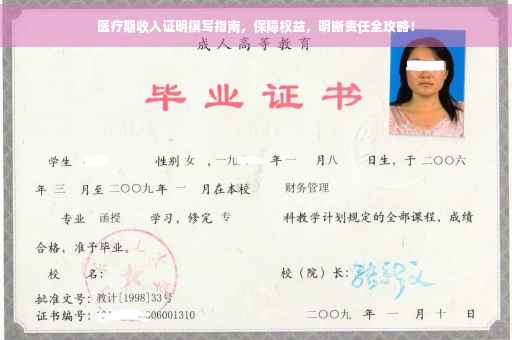 医疗期收入证明撰写指南，保障权益，明晰责任全攻略！
成人高等教育
毕业证书
学生 性别 女 ，一九 年一 月八 日生，于二〇〇六
年 三 月至二〇〇九年 一 月在本校 财务管理
专业 函授 学习，修完 专 科教学计划规定的全部课程，成绩
合格，准予毕业。
校 名： 校（院）长：
批准文号：教计[1998]33号
证书编号： 006001310 二〇〇九 年 一 月 十 日